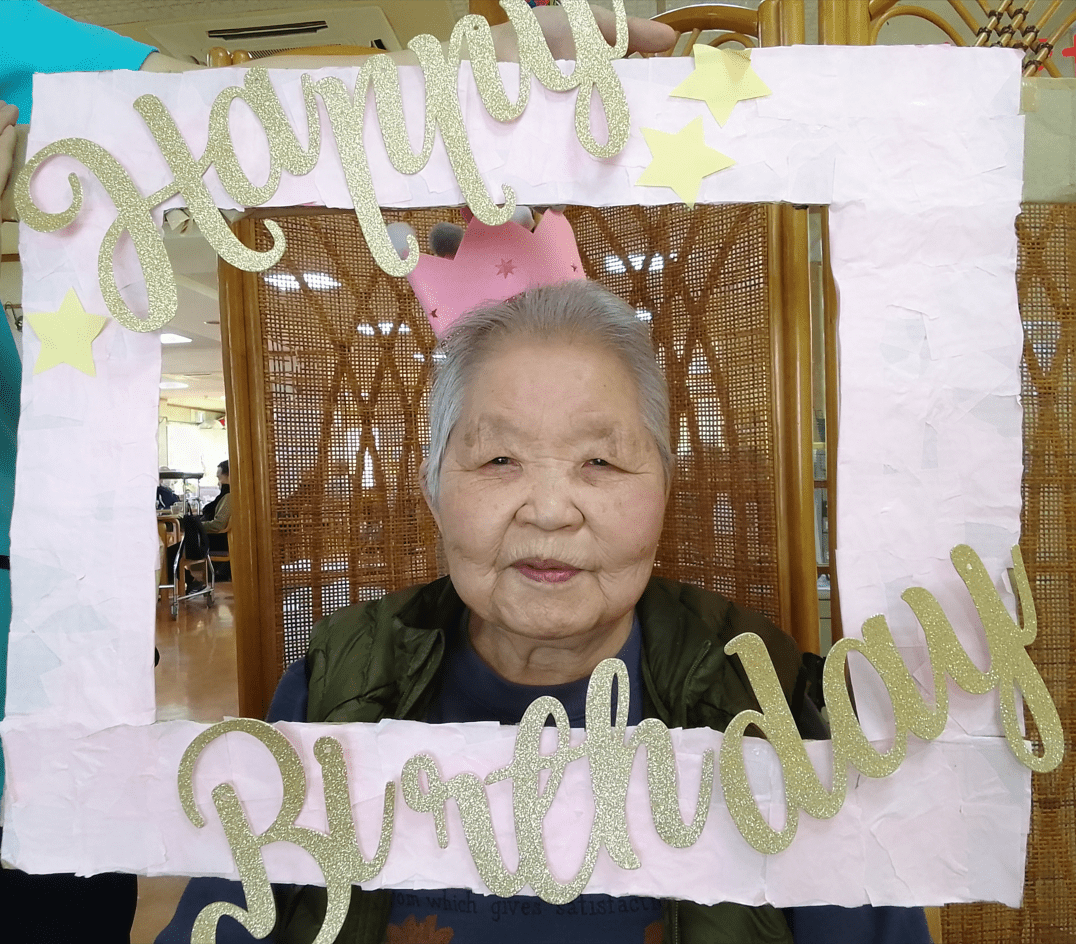 Happy
Birthday
om which gives satisfact